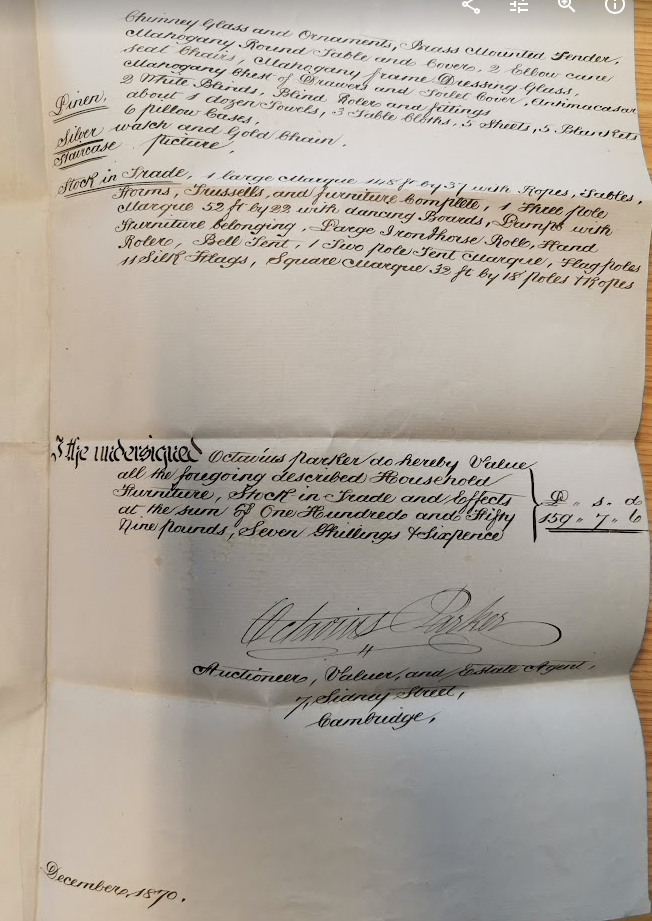 Chimney Glass and Ornaments, Brass Mounted Fender,
Mahogany Round Table and Cover, 2 Elbow cane
seat Chairs, Mahogany frame Dressing Glass,
Mahogany Chest of Drawers and Toilet Cover, Antimacasar
2 White Blinds, Blind Roler and fittings
Linen, about 1 dozen Towels, 3 Table Cloths, 5 Sheets, 5 Blankets
6 pillow Cases,
Silver watch and Gold Chain,
Staircase picture,
Stock in Trade, 1 large Marque 148 ft by 37 with Ropes, Tables,
Forms, Trussells, and furniture Complete, 1 Three pole
Marque 52 ft by 22 with dancing Boards, Lamps with
Furniture belonging, Large Iron Horse Roll, Hand
Roler, Bell Tent, 1 Two pole Tent Marque, Flag poles
11 Silk Flags, Square Marque 32 ft by 18 poles & Ropes
I the undersigned Octavius Parker do hereby Value
all the foregoing described Household
Furniture, Stock in Trade and Effects
at the sum of One Hundred and Fifty
Nine pounds, Seven Shillings & Sixpence
£ " s. d
159 " 7 " 6
Octavius Parker
Auctioneer, Valuer, and Estate Agent,
7, Sidney Street,
Cambridge,
December, 1870.